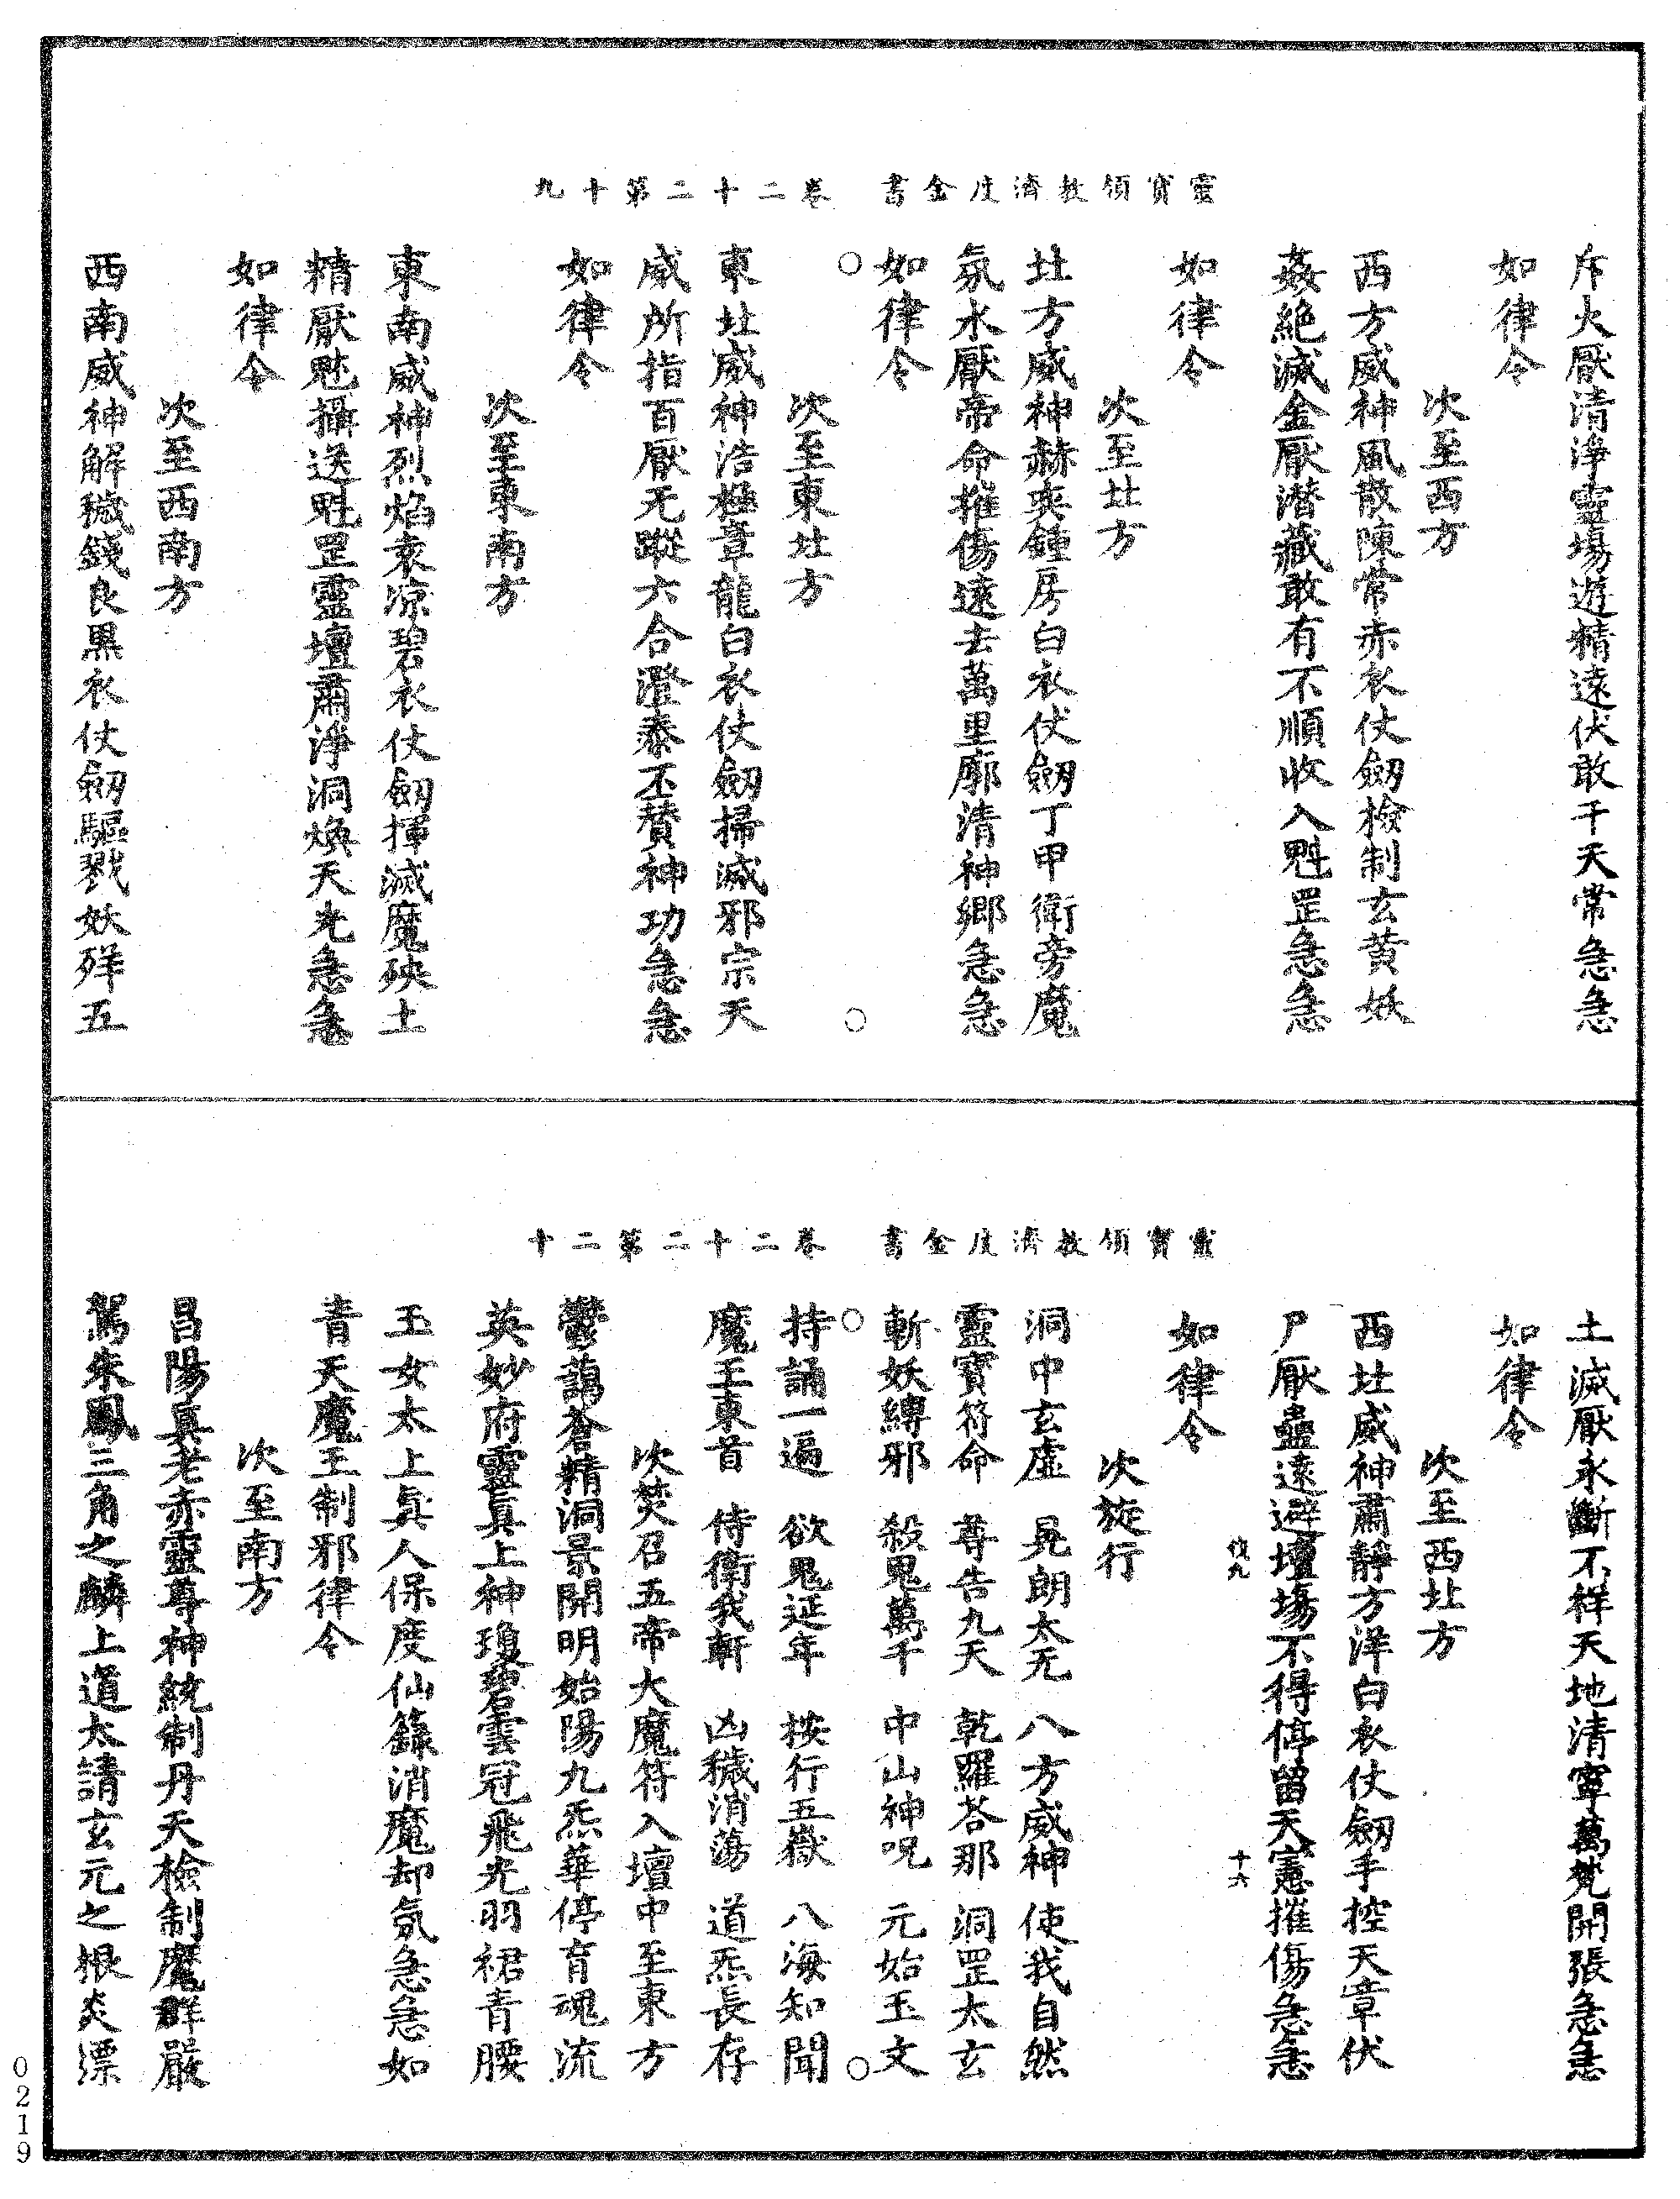 靈寶領教濟度金書　卷二十二第十九
斥火厭清淨靈場遊精遠伏敢干天常急急
如律令
次至西方
西方威神風散陳常赤衣仗劒檢制玄黄妖
姦絶滅金厭潜藏敢有不順收入魁罡急急
如律令
次至北方
北方威神赫奕鍾房白衣仗劒丁甲衛旁魔
氛水厭帝命摧傷遠去萬里廓清神郷急急
如律令
次至東北方
東北威神浩極韋龍白衣仗劒掃滅邪宗天
威所指百厭无蹤六合澄泰丕賛神功急急
如律令
次至東南方
東南威神烈焰衮凉碧衣仗劒揮滅魔殃土
精厭魅攝送魁罡靈壇肅淨洞煥天光急急
如律令
次至西南方
西南威神解穢錢良黒衣仗劒驅戮妖殃五
靈寶領教濟度金書　卷二十二第二十
土滅厭永斷不祥天地清寧萬梵開張急急
如律令
次至西北方
西北威神肅靜方洋白衣仗劒手控天章伏
尸厭蠱遠避壇場不得停留天憲摧傷急急
九　十六
如律令
次旋行
洞中玄虛　晃朗太元　八方威神　使我自然
靈寶符命　尊告九天　乾羅荅那　洞罡太玄
斬妖縛邪　殺鬼萬千　中山神呪　元始玉文
持誦一遍　欲鬼延年　按行五嶽　八海知聞
魔王束首　侍衛我軒　凶穢消蕩　道炁長存
次焚召五帝大魔符入壇中至東方
鬱藹蒼精洞景開明始陽九炁華停育魂流
英妙府靈真上神瓊碧雲冠飛光羽裙青腰
玉女太上真人保度仙籙消魔却氛急急如
青天魔王制邪律令
次至南方
昌陽真老赤靈尊神統制丹天檢制魔群嚴
駕朱鳳三角之麟上道太請玄元之根炎漂
0219